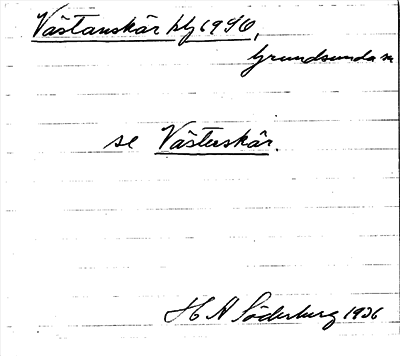 Västanskär
Grundsunda sn
se Västerskär.
H A Söderberg 1926